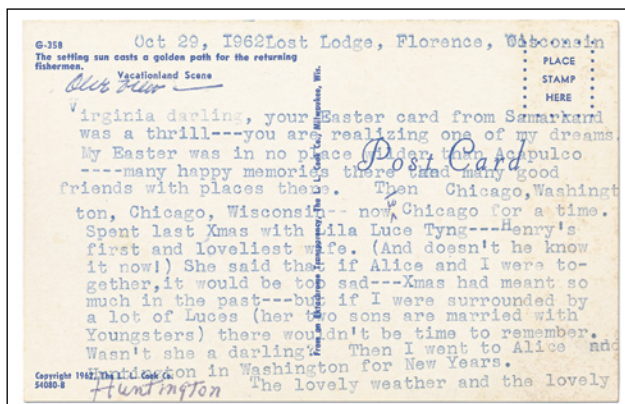 Oct 29, 1962Lost Lodge, Florence, Wisconsin
G-358
The setting sun casts a golden path for the returning
fishermen.
Vacationland Scene
Our view
PLACE
STAMP
HERE
Virginia darling, your Easter card from Samarkand
was a thrill---you are realizing one of my dreams.
My Easter was in no place wilder than Acapulco
----many happy memories there and many good
friends with places there. Then Chicago,Washingt
ton, Chicago, Wisconsin-- now Chicago for a time.
Spent last Xmas with Lila Luce Tyng---Henry's
first and loveliest wife. (And doesn't he know
it now!) She said that if Alice and I were to-
gether,it would be too sad---Xmas had meant so
much in the past---but if I were surrounded by
a lot of Luces (her two sons are married with
Youngsters) there wouldn't be time to remember.
Wasn't she a darling? Then I went to Alice and
Huntington in Washington for New Years.
The lovely weather and the lovely
Post Card
From an Ektachrome Transparency, The L. L. Cook Co., Milwaukee, Wis.
Copyright 1962, The L. L. Cook Co.
54080-B
Huntington